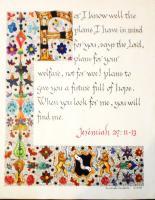 For I know well the
plans I have in mind
for you, says the Lord,
plans for your
welfare, not for woe! plans to
give you a future full of hope.
When you look for me, you will
find me.
Jeremiah 29: 11-13